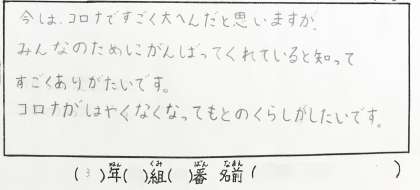 今は、コロナですごく大へんだと思いますが、
みんなのためにがんばってくれていると知って
すごくありがたいです。
コロナがはやくなくなってもとのくらしがしたいです。
(3)年( )組( )番 名前( )